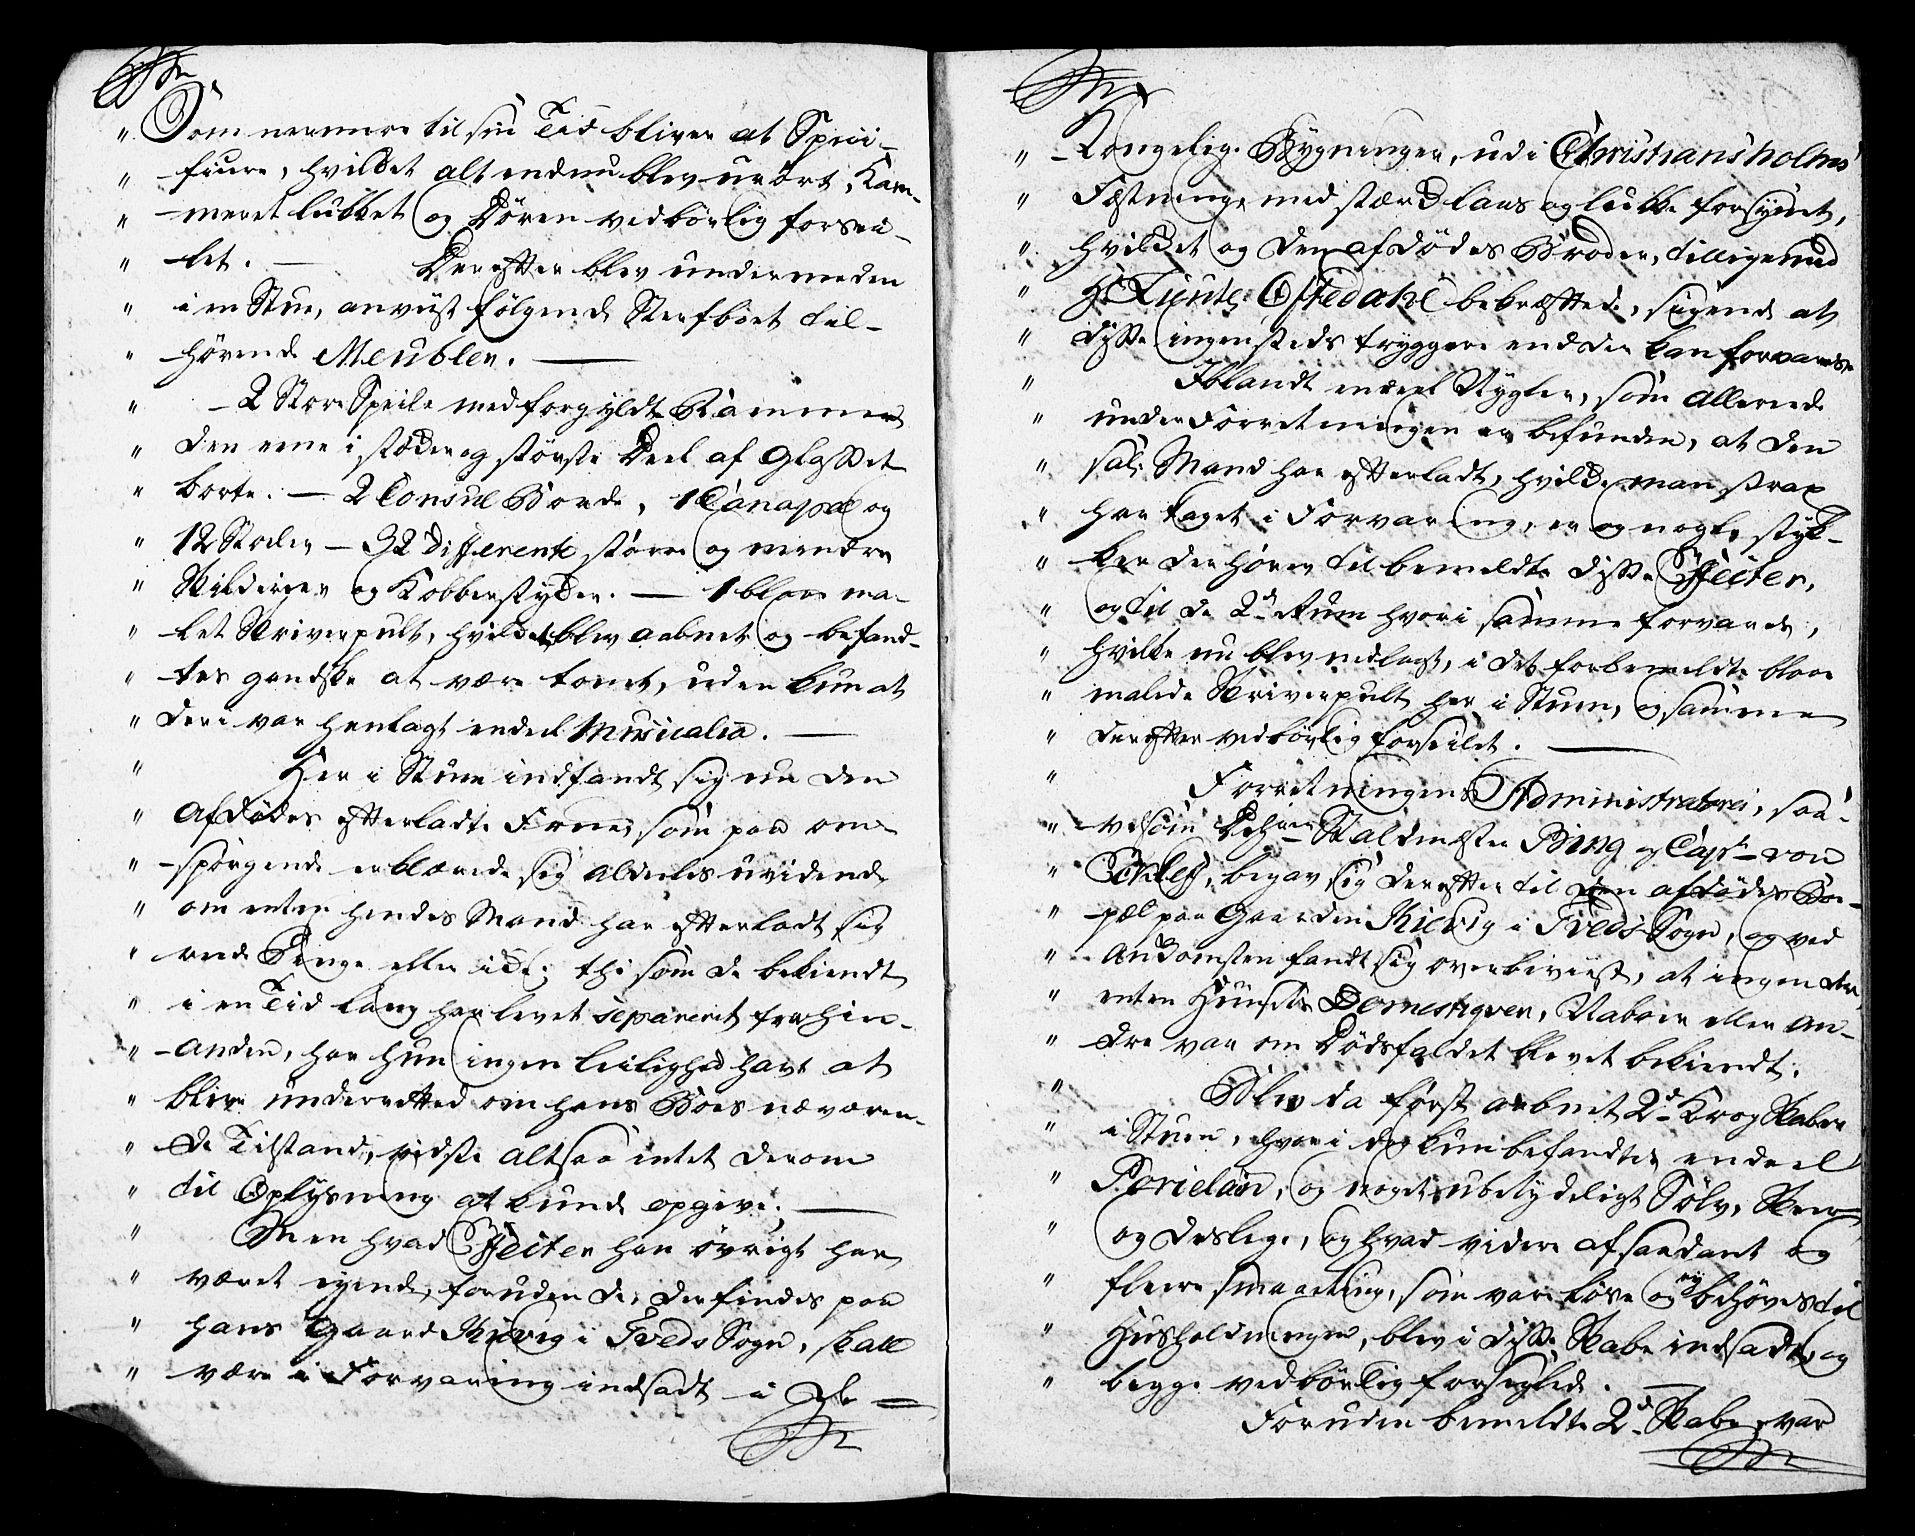 Som nærmere til sin Tid bliver at Speci-
ficere, hvilcket alt endnu blev urørt, Kam-
meret lukket og Døren vedbørlig forseig-
let. — Derefter blev underneden
i en Stue, anviist følgende Sterfboet til-
hørende Meubler. —
- 2 Store Speile med forgyldte Rammer
den eene i støder og største Deel af Glasset
borte. — 2 Consul Borde, 1 Canapæ og
12 Stoeler — 32 differente større og mindre
Skilderier og Kobberstycker. — 1 blaae ma-
let Skriverpult, hvilcket blev aabnet og befand-
tes gandske at være tomt, uden kun at
deri var henlagt endeel Musicalia. —
Her i Stuen indfandt sig nu den
Afdødes efterladte Frue, som paa om-
spørgende erklærede sig aldeeles uvidende
om enten hendes Mand har efterladt sig
reede Penge eller icke; thi som de bekiendt
i en Tid lang har levet separeret fra hin-
anden, har hun ingen leilighed havt at
blive underrettet om hans Boes nærværen-
de Tilstand, vidste altsaa intet derom
til Oplysning at kunde opgive. —
Men hvad Effecter han øvrigt har
været eyende, foruden de, der findes paa
hans Gaard Kievig i Tveds Sogn, skall
være i Forvaring indsadt i De —
Kongelige Bygninger, udi Christiansholms
Fæstning, med stærck laas og lukke forsynet,
hvilcket og den afdødes Broder, tilligemed
Hr Lieute: Offedahl bekræftede, sigende at
disse ingensteds tryggere end der kan forvares.
Iblandt endeel Nøgler, som allerede
under Forretningen er befunden, at den
sal: Mand har efterladt, hvilcke man strax
har taget i Forvaring, er og nogle styk-
ker der hører til bemeldte disse Effecter,
og til de 2de Rum hvori samme forvares,
hvilke nu blev nedlagt, i det forbemeldte blaae
malede Skriverpult her i Stuen, og samme
derefter vedbørlig forseiglet. —
Forretningens Administratorer, saa-
velsom Stadtmester Bing og Capt: von
begav sig derefter til den afdødes Boe-
pæl paa Gaarden Kievig i Tveds Sogn, og ved
Ankomsten fandt sig overbeviist, at ingen der
enten Huusets Domestiqver, Naboer eller An-
dre var om Dødsfaldet blevet bekiendt.
Blev da først aabnet 2de Krog Skaber
i Stuen, hvori der kun befandtes endeel
Porcelain, og noget ubetydeligt Sølv, Skeer
og deslige, og hvad videre af saadant og
fleere smaaeting, som var løse og ey behøves til
Huusholdningen, blev i disse Skabe indsadt, og
begge vedbørlig forseglede. —
Foruden bemeldte 2de Skabe, var